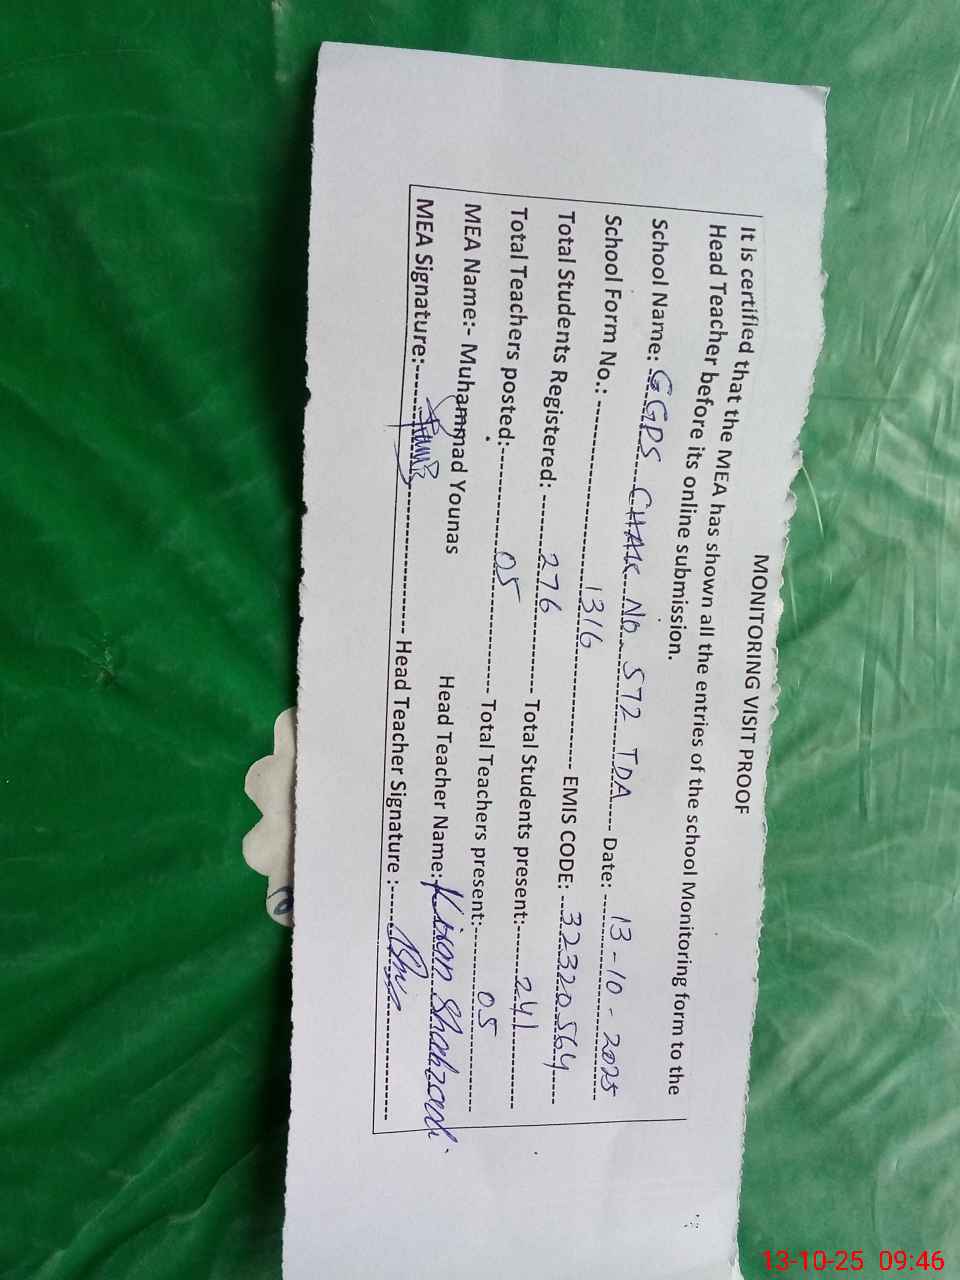 MONITORING VISIT PROOF
It is certified that the MEA has shown all the entries of the school Monitoring form to the
Head Teacher before its online submission.
School Name: GGPS CHAK No. 572 TDA Date: 13-10-2025
School Form No.: 1316 EMIS CODE: 32320564
Total Students Registered: 276 Total Students present: 241
Total Teachers posted: 05 Total Teachers present: 05
MEA Name:- Muhammad Younas Head Teacher Name: Kiran Shahzadi
MEA Signature: Head Teacher Signature :
13-10-25 09:46